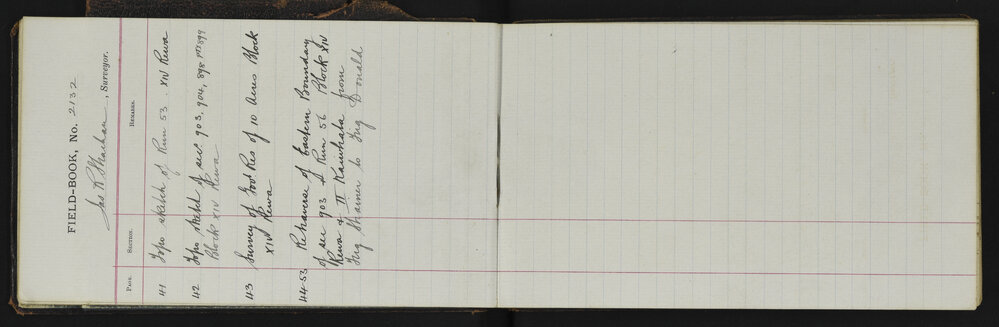 FIELD-BOOK, No. 2132
Jas R Strachan, Surveyor.
PAGE. SECTION. REMARKS.
41 Topo sketch of Run 53 XIV Rewa
42 Topo sketch of secs 903, 904, 898 pts 899
Block XIV Rewa
43 Survey of Govt Res of 10 acres Block
XIV Rewa
44-53 Retraverse of Eastern Boundary
of sec 903 & Run 56 Block XIV
Rewa & II Kaiwhata from
Trig Strainer to Trig Donald